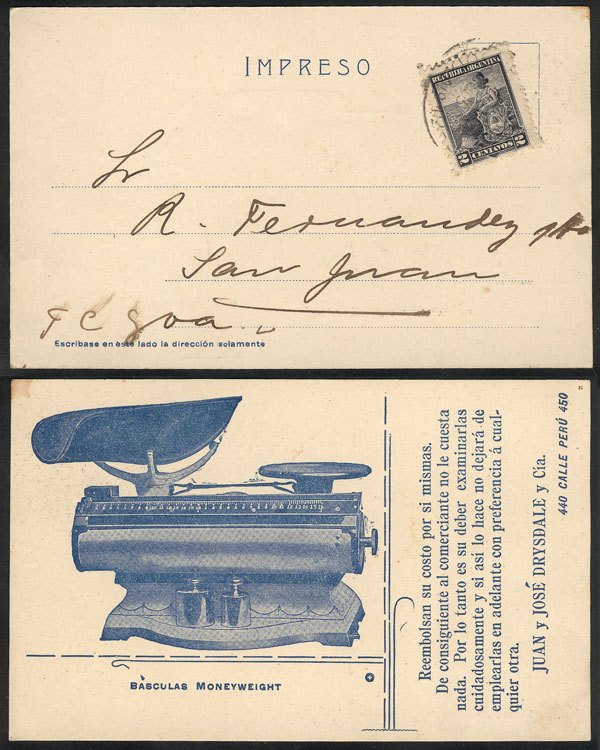 IMPRESO
REPUBLICA ARGENTINA
2 CENTAVOS 2
Sr
R. Fernandez
San Juan
F C Goa
Escríbase en éste lado la dirección solamente
BÁSCULAS MONEYWEIGHT
Reembolsan su costo por si mismas.
De consiguiente al comerciante no le cuesta
nada. Por lo tanto es su deber examinarlas
cuidadosamente y si así lo hace no dejará de
emplearlas en adelante con preferencia á cual-
quier otra.
JUAN y JOSÉ DRYSDALE y Cía.
440 CALLE PERÚ 450